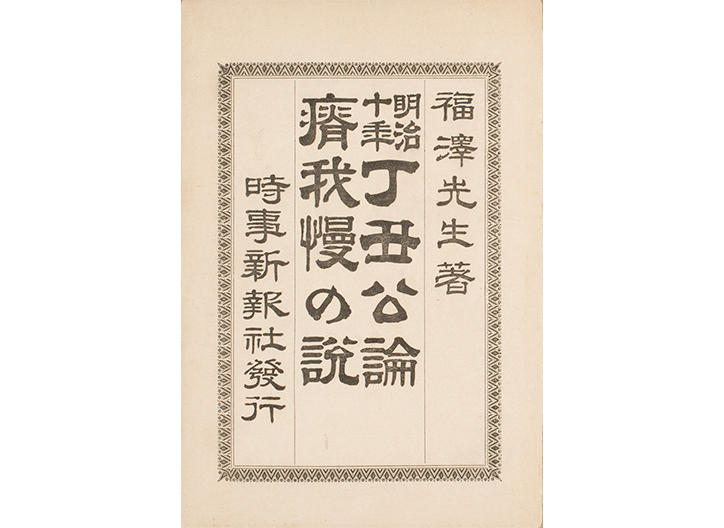 福澤先生著
明治
十年
丁丑公論
瘠我慢の説
時事新報社發行